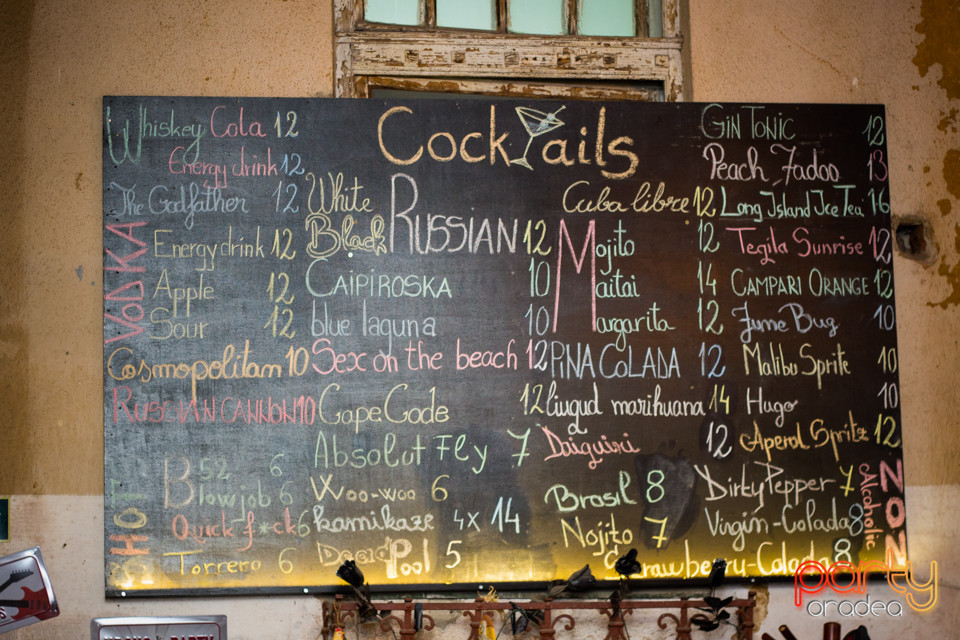 Cocktails
Whiskey Cola 12
Energy drink 12
The Godfather 12
VODKA
Energy drink 12
Apple 12
Sour 12
Cosmopolitan 10
RUSSIAN CANNON 10
SHOT
B52 6
Blowjob 6
Quick-f*ck 6
Torrero 6
White
Black
RUSSIAN 12
CAIPIROSKA 10
blue laguna 10
Sex on the beach 12
Cape Code 12
Absolut Fly 7
Woo-woo 6
kamikaze 4x 14
DeadPool 5
Cuba libre 12
Mojito 12
Maitai 14
Margarita 12
PINA COLADA 12
liugud marihuana 14
Daiguiri 12
Brasil 8
Nojito 7
Strawberry-Colada 8
GIN TONIC 12
Peach Fadoo 13
Long Island Ice Tea 16
Tegila Sunrise 12
CAMPARI ORANGE 12
June Bug 10
Malibu Sprite 10
Hugo 10
Aperol Spritz 12
NON
Alcoholic
Dirty Pepper 7
Virgin-Colada 8
party
oradea